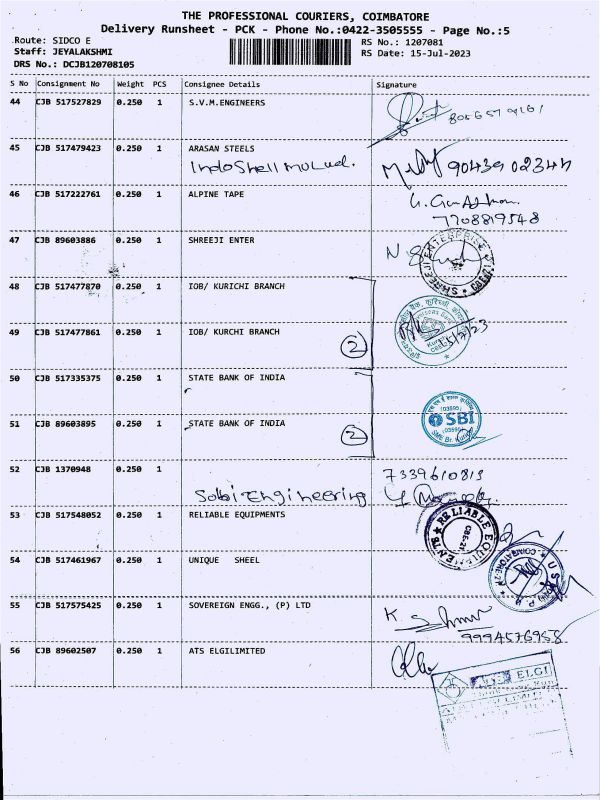 THE PROFESSIONAL COURIERS, COIMBATORE
Delivery Runsheet - PCK - Phone No.:0422-3505555 - Page No.:5
Route: SIDCO E
RS No.: 1207081
Staff: JEYALAKSHMI
RS Date: 15-Jul-2023
DRS No.: DCJB120708105
S No Consignment No Weight PCS Consignee Details Signature
44 CJB 517527829 0.250 1 S.V.M.ENGINEERS
45 CJB 517479423 0.250 1 ARASAN STEELS
90439 02344
46 CJB 517222761 0.250 1 ALPINE TAPE
7708819548
47 CJB 89603886 0.250 1 SHREEJI ENTER
SHREEJI ENTERPRISE
48 CJB 517477870 0.250 1 IOB/ KURICHI BRANCH
49 CJB 517477861 0.250 1 IOB/ KURCHI BRANCH
2
15/7/23
50 CJB 517335375 0.250 1 STATE BANK OF INDIA
51 CJB 89603895 0.250 1 STATE BANK OF INDIA
2
SBI
52 CJB 1370948 0.250 1
7339610813
Sabi Engineering
53 CJB 517548052 0.250 1 RELIABLE EQUIPMENTS
RELIABLE EQUIPMENTS
CBE-21
54 CJB 517461967 0.250 1 UNIQUE SHEEL
COIMBATORE-21
55 CJB 517575425 0.250 1 SOVEREIGN ENGG., (P) LTD
9994576958
56 CJB 89602507 0.250 1 ATS ELGILIMITED
ELGI